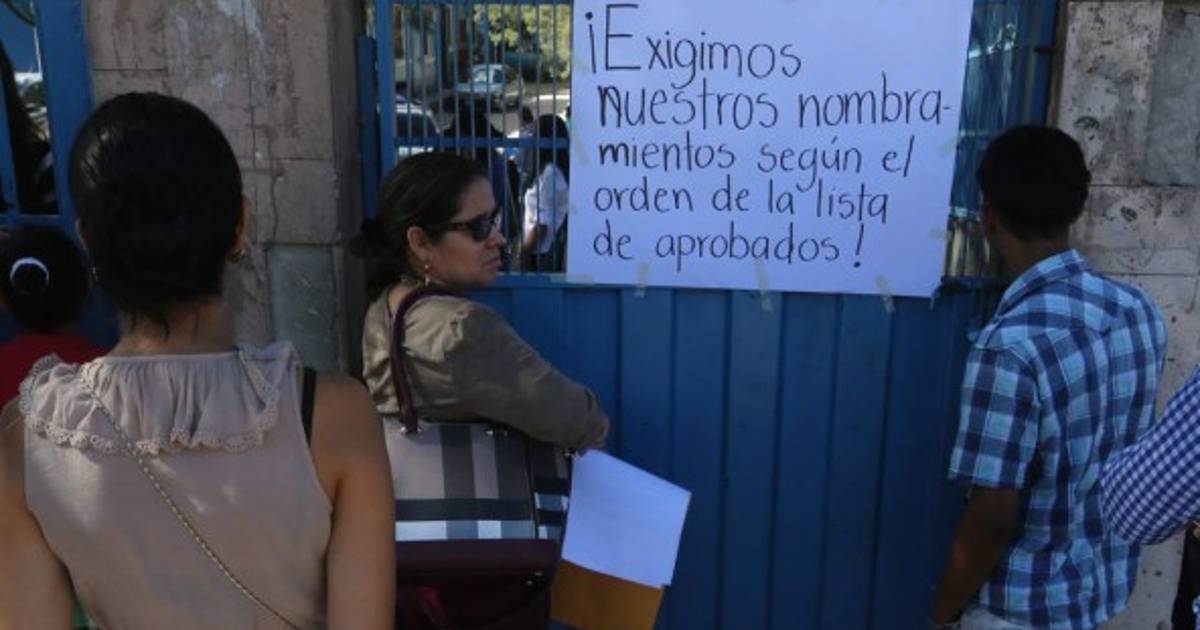 ¡Exigimos
nuestros nombra-
mientos según el
orden de la lista
de aprobados!